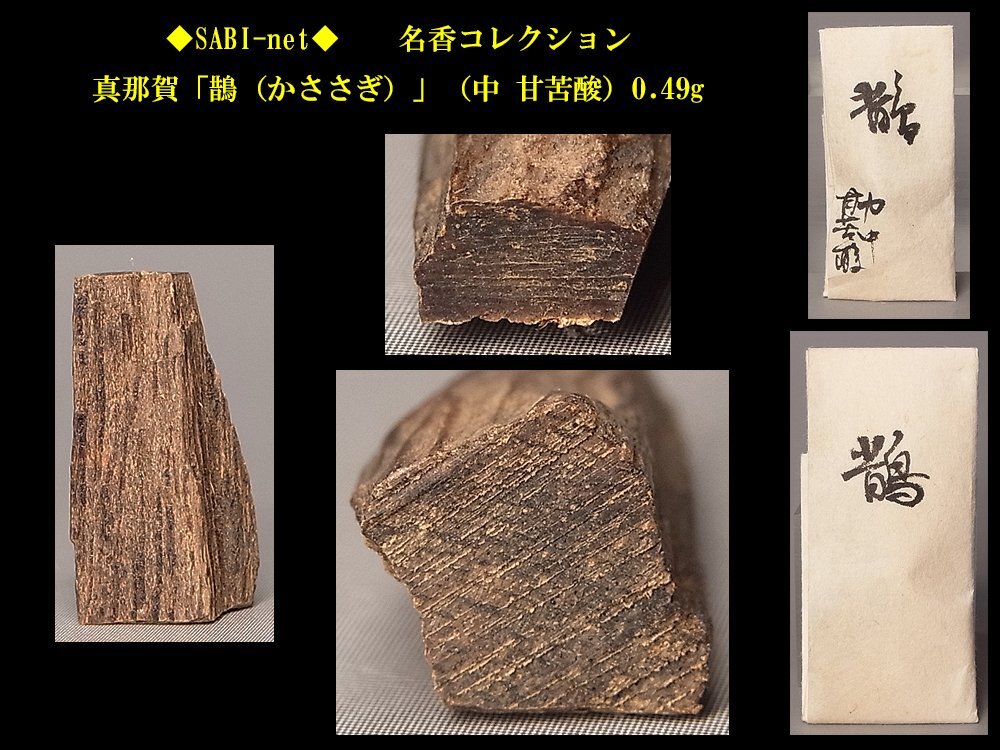 ◆SABI-net◆　　名香コレクション
真那賀「鵲（かささぎ）」（中 甘苦酸）0.49g
鵲
中
甘苦酸
鵲